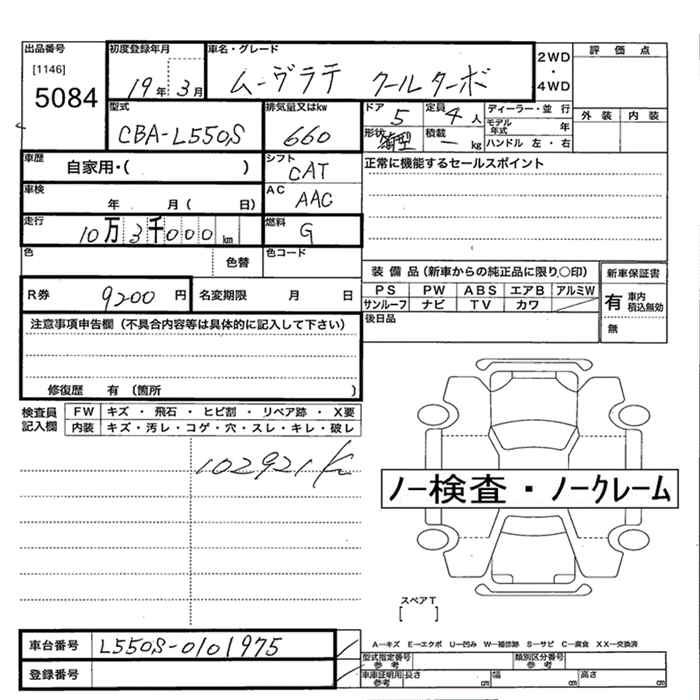 出品番号 初度登録年月 車名・グレード 2WD ・ 4WD 評価点
[1146]
5084 19年 3月 ムーヴラテ クールターボ
型式 排気量又はkw ドア 5 定員 4人 ディーラー・並行 外装 内装
CBA-L550S 660 形状 箱型 積載 ー kg モデル年式 年
ハンドル 左・右
車歴 自家用・( ) シフト CAT 正常に機能するセールスポイント
車検 年 月( 日) AC AAC
走行 10万3千000km 燃料 G
色 色替 色コード
装備品(新車からの純正品に限り〇印) 新車保証書
R券 9200円 名変期限 月 日 PS PW ABS エアB アルミW 有 車内積込無効
サンルーフ ナビ TV カワ
注意事項申告欄(不具合内容等は具体的に記入して下さい) 後日品 無
修復歴 有(箇所 )
検査員記入欄 FW キズ・飛石・ヒビ割・リペア跡・X要
内装 キズ・汚レ・コゲ・穴・スレ・キレ・破レ
102921K
ノー検査・ノークレーム
スペアT
[ ]
車台番号 L550S-0101975 A−キズ E−エクボ U−凹み W−補修跡 S−サビ C−腐食 XX−交換済
型式指定番号 参考 類別区分番号 参考
登録番号 車庫証明用 参考 長さ cm 幅 cm 高さ cm